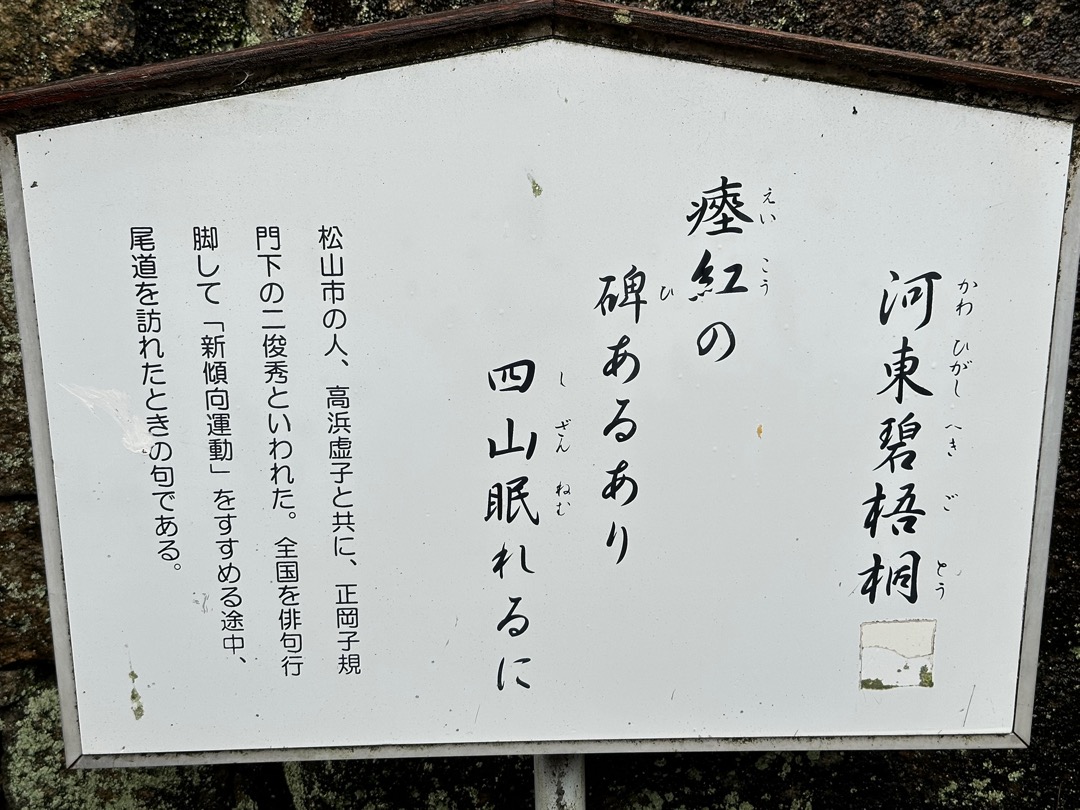 河東碧梧桐
かわ ひがし へき ご とう
瘞紅の
えい こう
碑あるあり
ひ
四山眠れるに
し ざん ねむ
松山市の人、高浜虚子と共に、正岡子規
門下の二俊秀といわれた。全国を俳句行
脚して「新傾向運動」をすすめる途中、
尾道を訪れたときの句である。